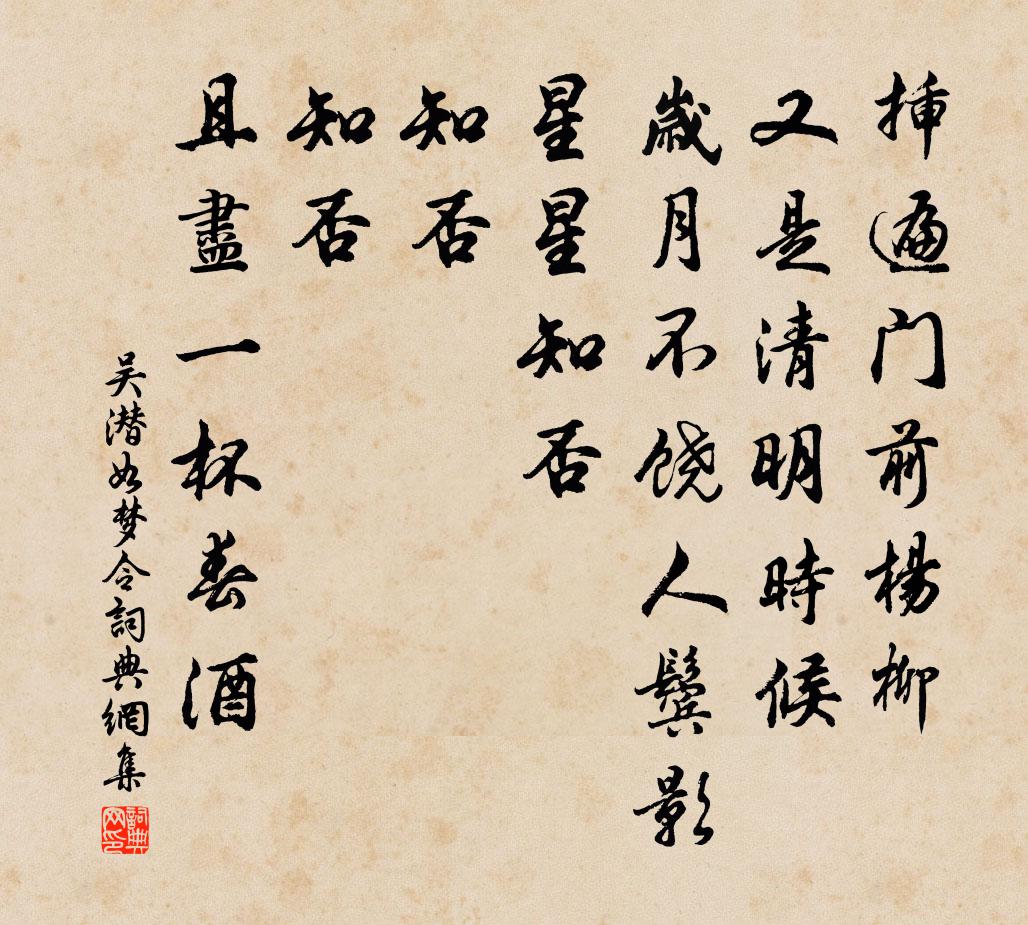 挿遍门前楊柳
又是清明時候
歳月不饶人鬓影
星星知否
知否
知否
且盡一杯春酒
吴潜如梦令詞典網集
詞典网印